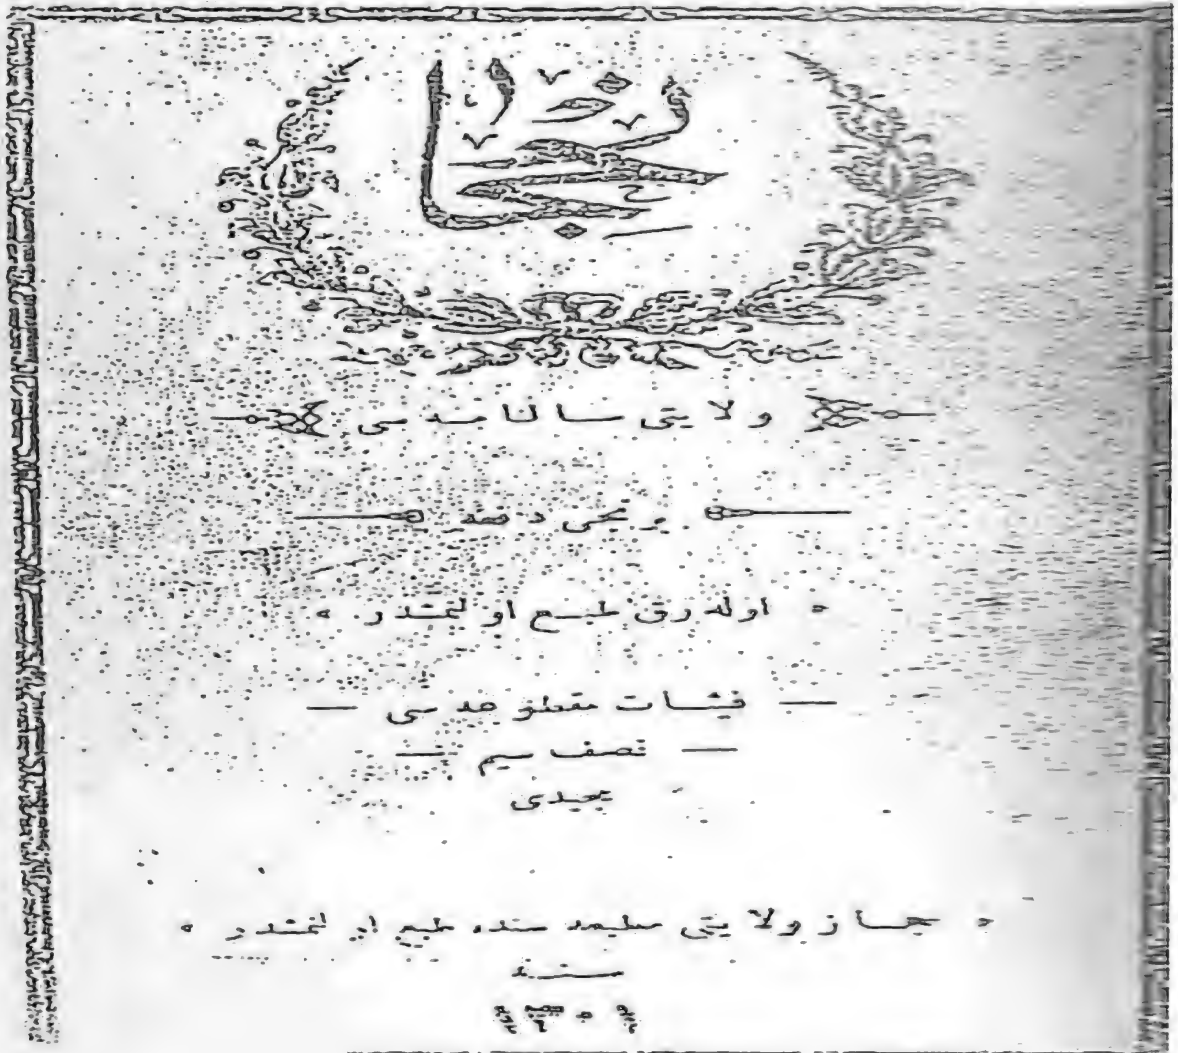 ولايتى سالنامه سى
برنجى دفعه
اوله رق طبع اولنمشدر
فيئات مقطوعه سى
نصف سيم
مجيدى
حجاز ولايتى مطبعه سنده طبع اولنمشدر
سنه